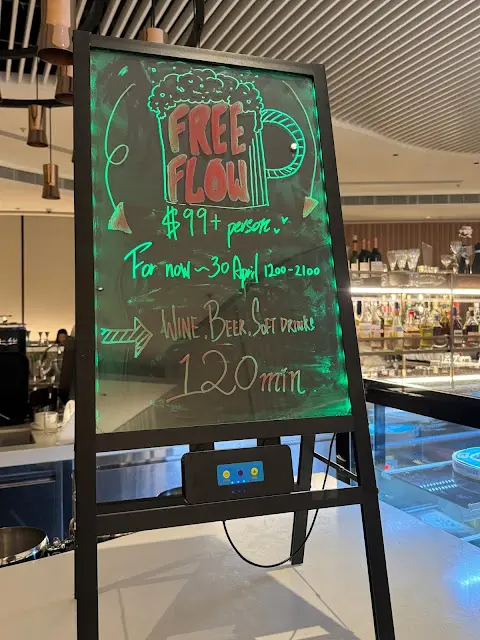 FREE
FLOW
$99+ person
For now ~30 April 1200-2100
WINE, BEER, SOFT DRINKS
120 min